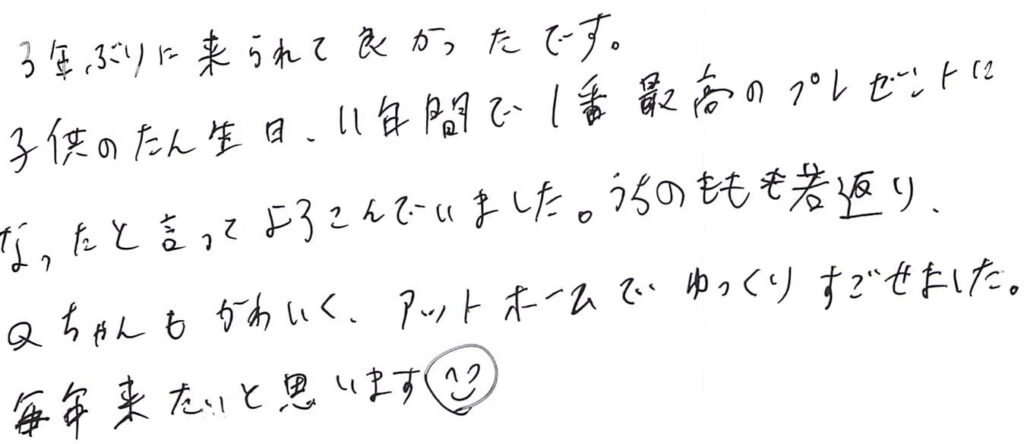 3年ぶりに来られて良かったです。
子供のたん生日、11年間で1番最高のプレゼントに
なったと言ってよろこんでいました。うちのももも若返り、
Qちゃんもかわいく、アットホームでゆっくりすごせました。
毎年来たいと思います